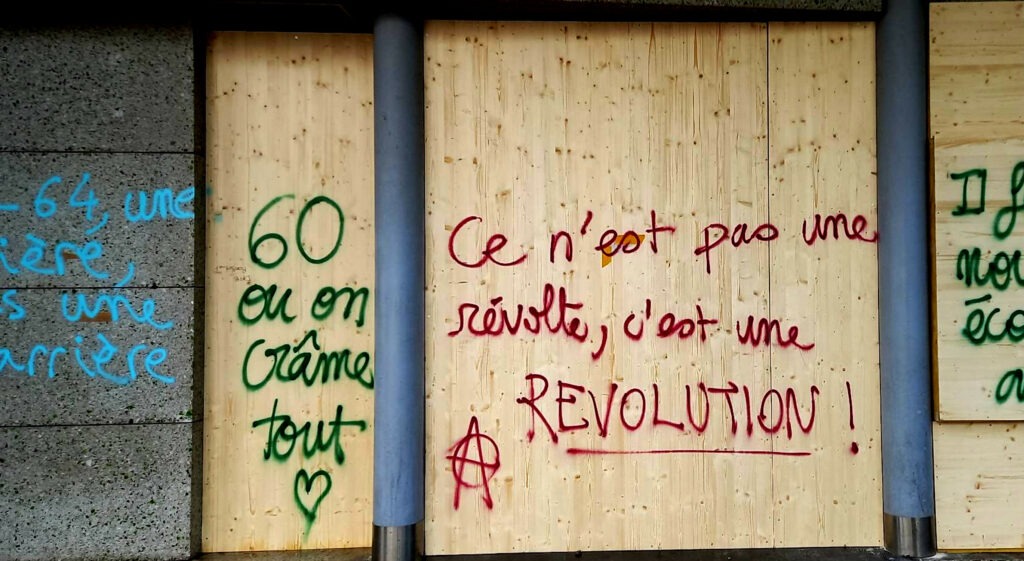 -64, une
ière,
s une
arrière
60
ou on
crâme
tout
Ce n'est pas une
révolte, c'est une
REVOLUTION !
Il f
nou
éco
a